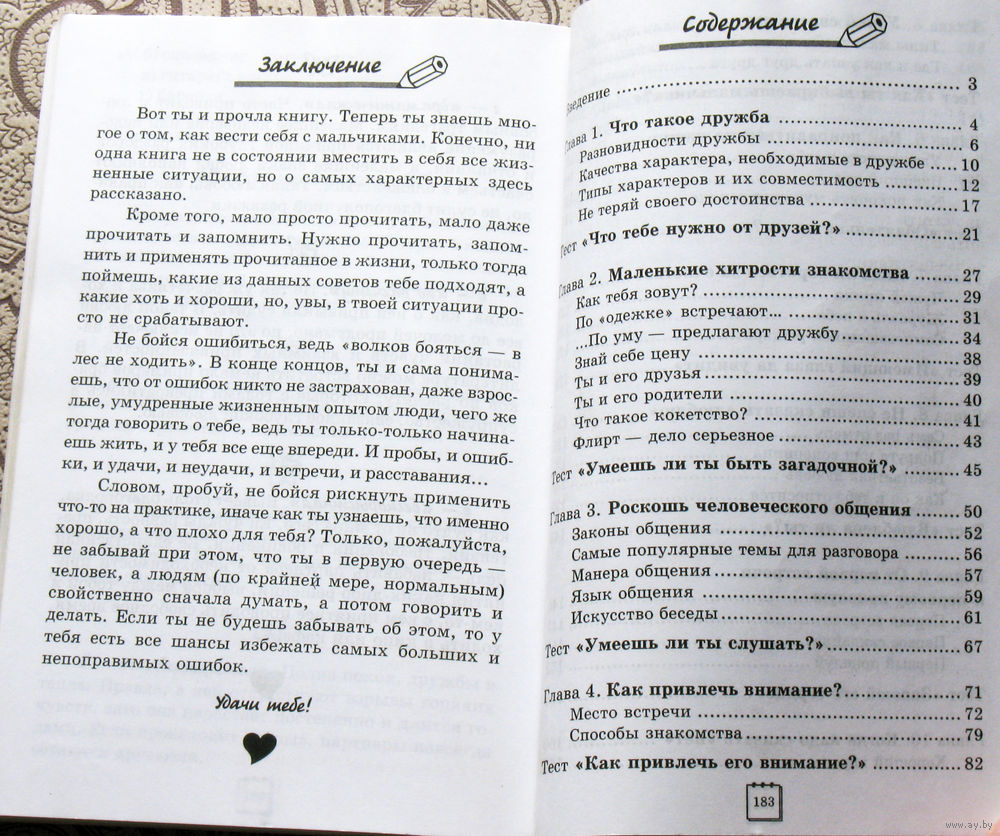 Заключение
Вот ты и прочла книгу. Теперь ты знаешь мно-
гое о том, как вести себя с мальчиками. Конечно, ни
одна книга не в состоянии вместить в себя все жиз-
ненные ситуации, но о самых характерных здесь
рассказано.
Кроме того, мало просто прочитать, мало даже
прочитать и запомнить. Нужно прочитать, запом-
нить и применять прочитанное в жизни, только тогда
поймешь, какие из данных советов тебе подходят, а
какие хоть и хороши, но, увы, в твоей ситуации про-
сто не срабатывают.
Не бойся ошибиться, ведь «волков бояться — в
лес не ходить». В конце концов, ты и сама понима-
ешь, что от ошибок никто не застрахован, даже взрос-
лые, умудренные жизненным опытом люди, чего же
тогда говорить о тебе, ведь ты только-только начина-
ешь жить, и у тебя все еще впереди. И пробы, и ошиб-
ки, и удачи, и неудачи, и встречи, и расставания...
Словом, пробуй, не бойся рискнуть применить
что-то на практике, иначе как ты узнаешь, что именно
хорошо, а что плохо для тебя? Только, пожалуйста,
не забывай при этом, что ты в первую очередь —
человек, а людям (по крайней мере, нормальным)
свойственно сначала думать, а потом говорить и
делать. Если ты не будешь забывать об этом, то у
тебя есть все шансы избежать самых больших и
непоправимых ошибок.
Удачи тебе!
Содержание
Введение 3
Глава 1. Что такое дружба 4
Разновидности дружбы 6
Качества характера, необходимые в дружбе 10
Типы характеров и их совместимость 12
Не теряй своего достоинства 17
Тест «Что тебе нужно от друзей?» 21
Глава 2. Маленькие хитрости знакомства 27
Как тебя зовут? 29
По «одежке» встречают... 31
...По уму — предлагают дружбу 34
Знай себе цену 38
Ты и его друзья 39
Ты и его родители 40
Что такое кокетство? 41
Флирт — дело серьезное 43
Тест «Умеешь ли ты быть загадочной?» 45
Глава 3. Роскошь человеческого общения 50
Законы общения 52
Самые популярные темы для разговора 56
Манера общения 57
Язык общения 59
Искусство беседы 61
Тест «Умеешь ли ты слушать?» 67
Глава 4. Как привлечь внимание? 71
Место встречи 72
Способы знакомства 79
Тест «Как привлечь его внимание?» 82
183
www.ay.by